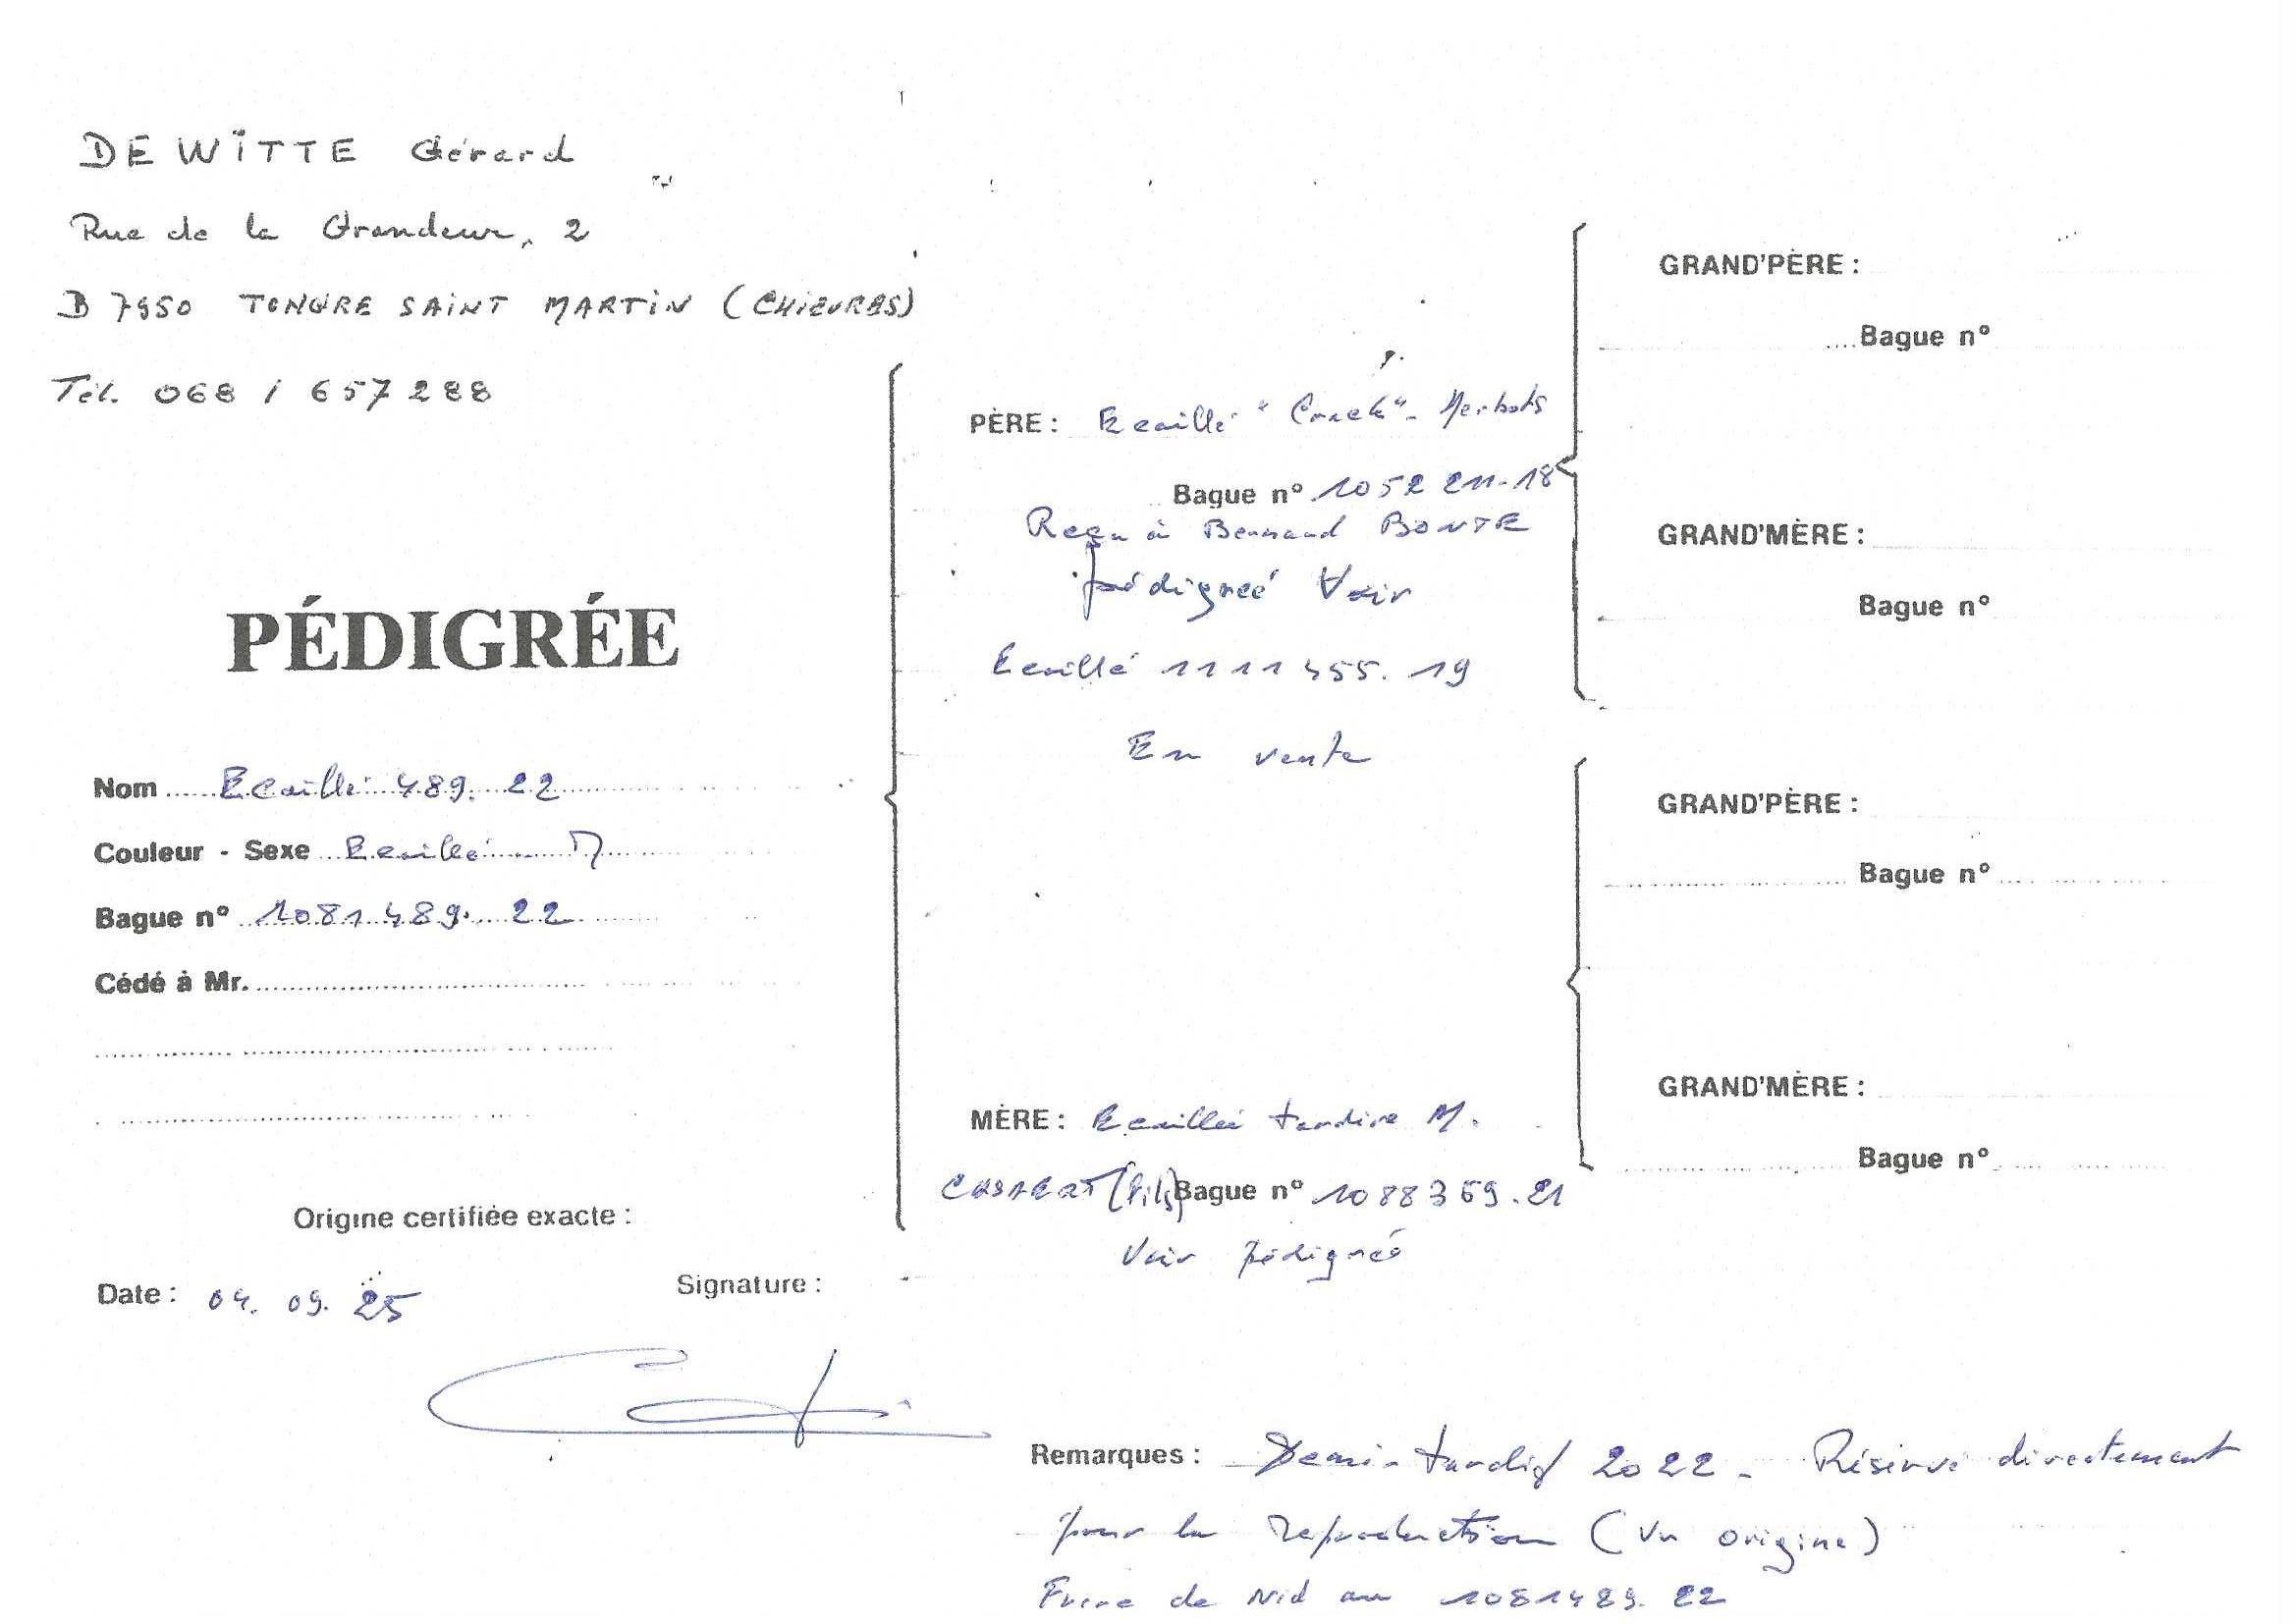 DE WITTE Gérard
Rue de la Grandeur, 2
B 7950 TONGRE SAINT MARTIN (CHIEVRES)
Tél. 068 / 657288
PÉDIGRÉE
Nom Ecaillé 489. 22
Couleur - Sexe Ecaillé M
Bague nº 1081489. 22
Cédé à Mr.
Origine certifiée exacte :
Date : 04. 09. 25
Signature :
PÈRE : Ecaillé "Crack" - Herbots
Bague nº 1052211-18
Reçu à Bernard BONTE
pédigreé Voir
Ecaillé 1111455. 19
En vente
MÈRE : Ecaillée tardive M.
(fils) Bague nº 1088369. 21
Voir pédigreé
GRAND'PÈRE :
Bague nº
GRAND'MÈRE :
Bague nº
GRAND'PÈRE :
Bague nº
GRAND'MÈRE :
Bague nº
Remarques : Demi-tardif 2022 - Réservé directement
pour la reproduction (vu origine)
Frère de nid au 1081489. 22